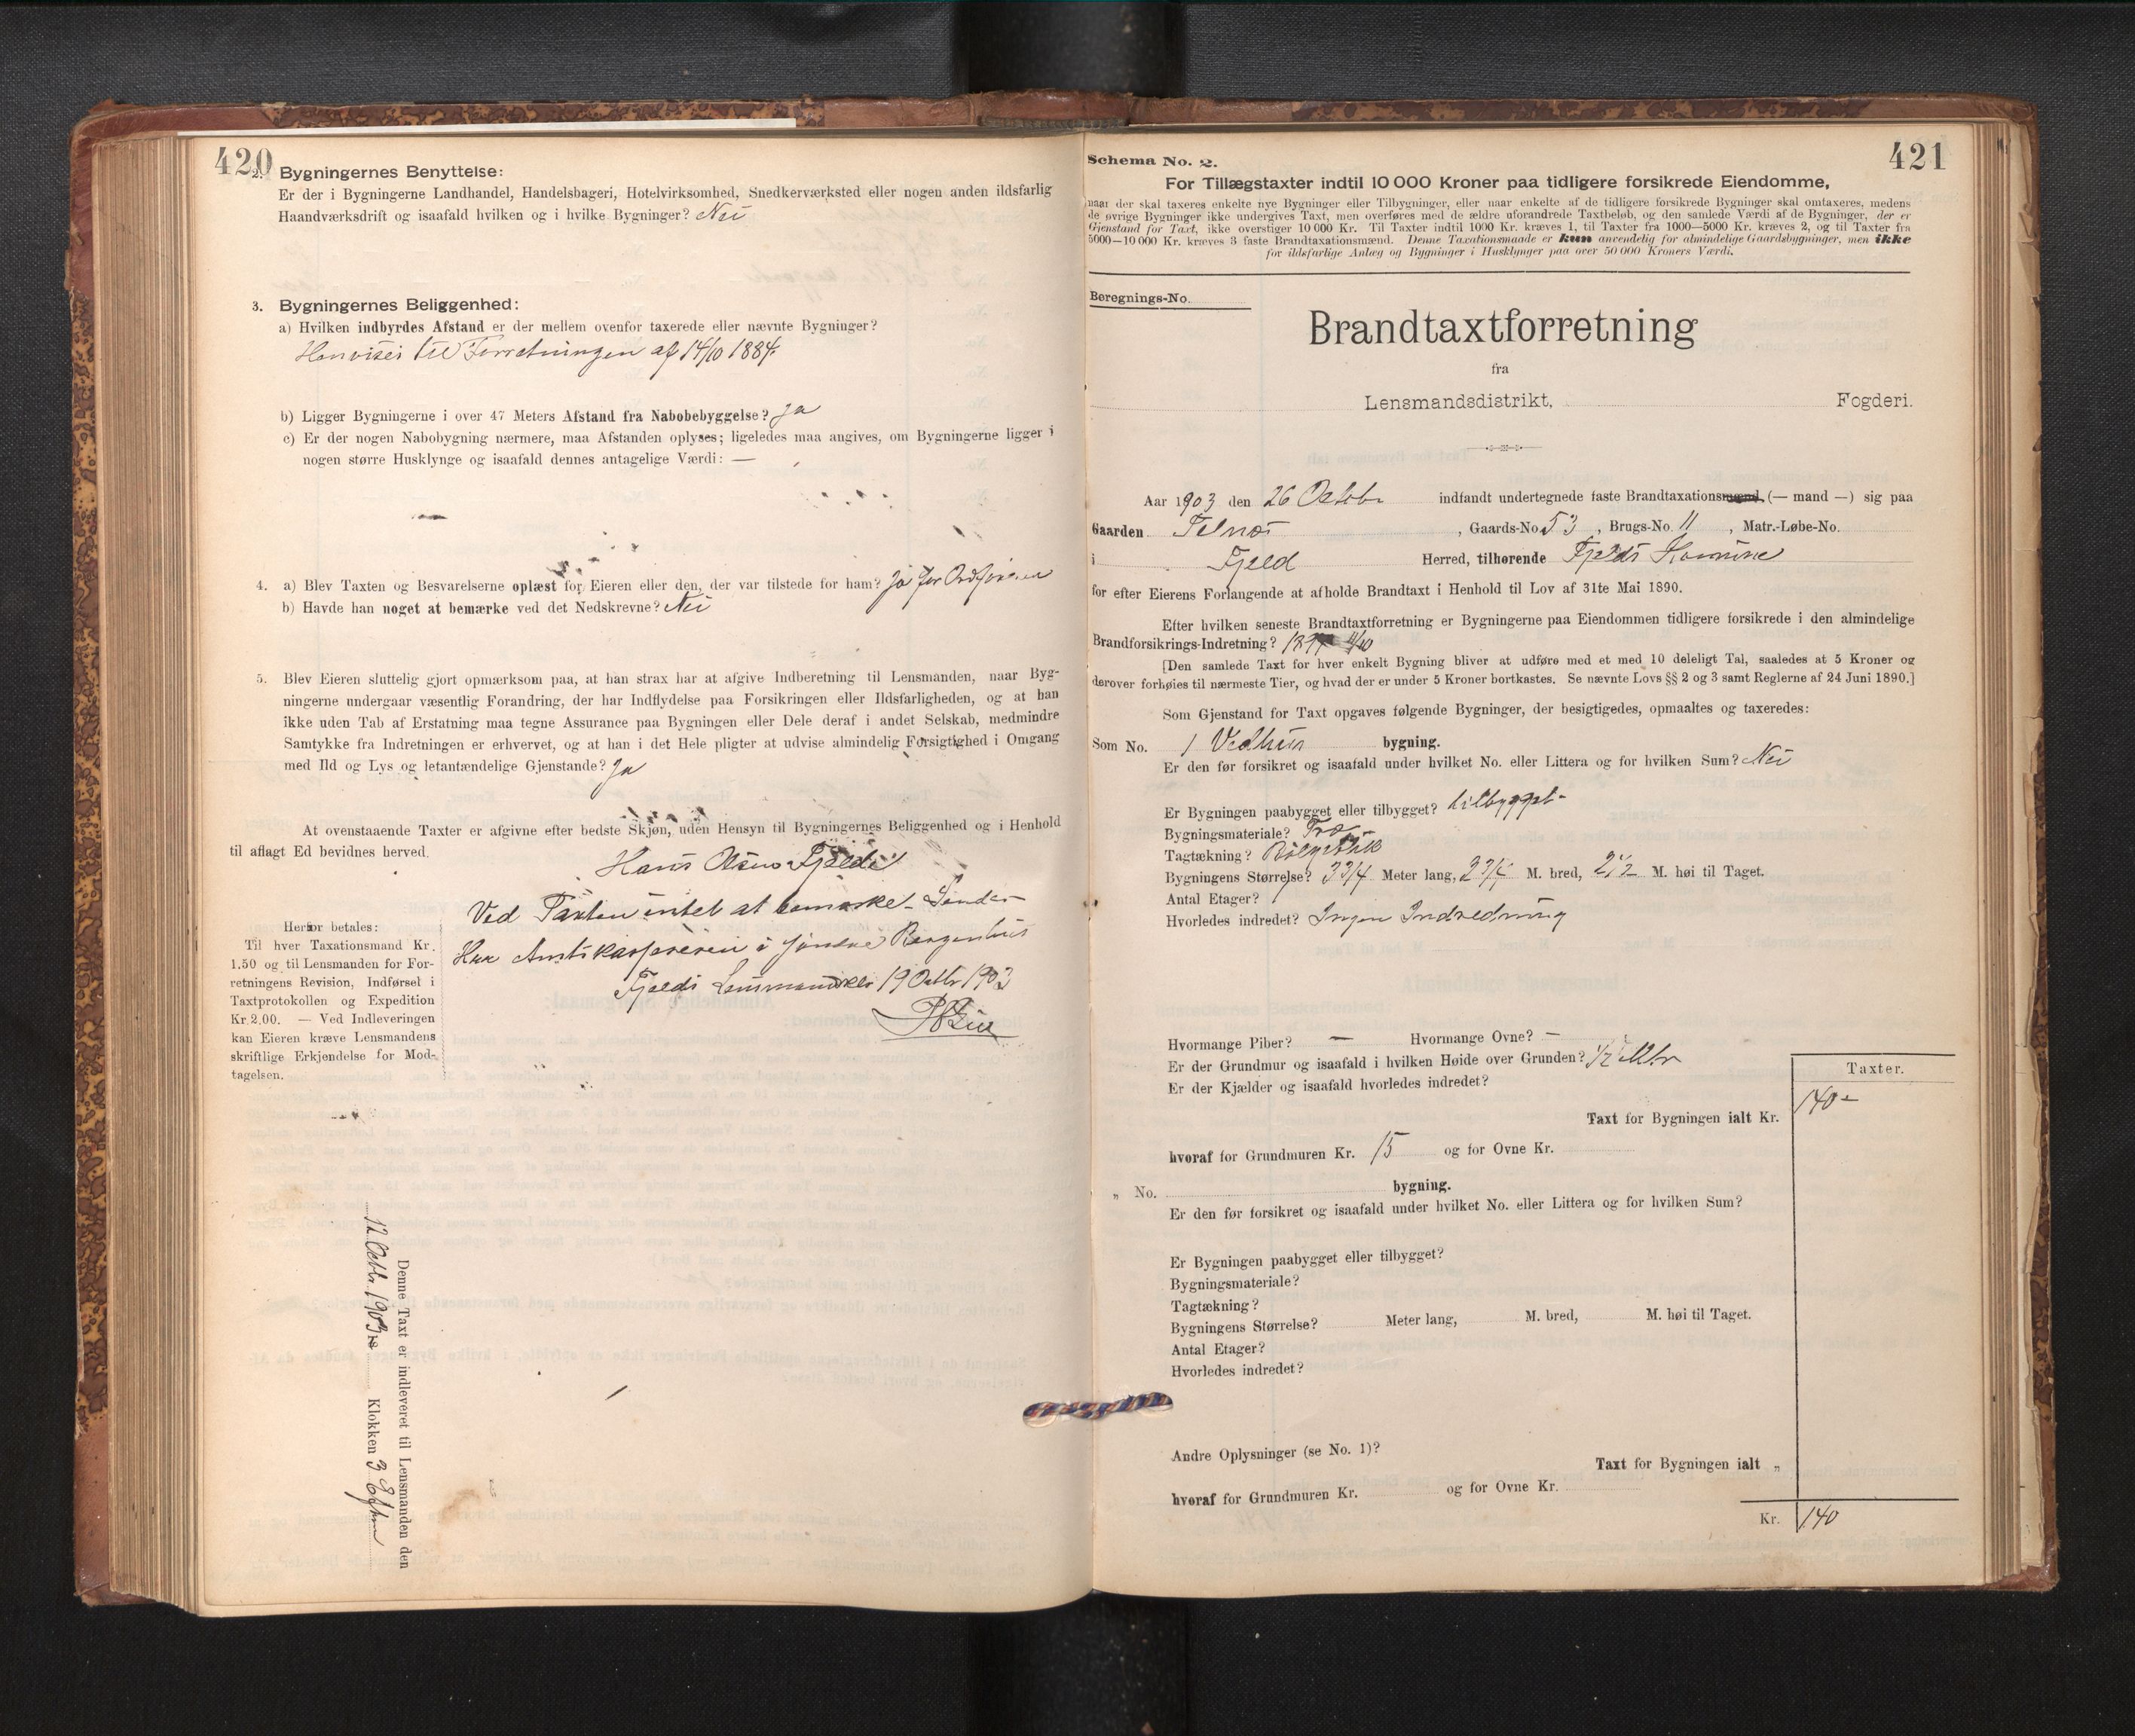 420
2. Bygningernes Benyttelse:
Er der i Bygningerne Landhandel, Handelsbageri, Hotelvirksomhed, Snedkerværksted eller nogen anden ildsfarlig
Haandværksdrift og isaafald hvilken og i hvilke Bygninger? Nei
3. Bygningernes Beliggenhed:
a) Hvilken indbyrdes Afstand er der mellem ovenfor taxerede eller nævnte Bygninger?
Henvises til Forretningen af 14/10 1884.
b) Ligger Bygningerne i over 47 Meters Afstand fra Nabobebyggelse? Ja
c) Er der nogen Nabobygning nærmere, maa Afstanden oplyses; ligeledes maa angives, om Bygningerne ligger i
nogen større Husklynge og isaafald dennes antagelige Værdi: —
4. a) Blev Taxten og Besvarelserne oplæst for Eieren eller den, der var tilstede for ham? Ja for Ordføreren
b) Havde han noget at bemærke ved det Nedskrevne? Nei
5. Blev Eieren sluttelig gjort opmærksom paa, at han strax har at afgive Indberetning til Lensmanden, naar Byg-
ningerne undergaar væsentlig Forandring, der har Indflydelse paa Forsikringen eller Ildsfarligheden, og at han
ikke uden Tab af Erstatning maa tegne Assurance paa Bygningen eller Dele deraf i andet Selskab, medmindre
Samtykke fra Indretningen er erhvervet, og at han i det Hele pligter at udvise almindelig Forsigtighed i Omgang
med Ild og Lys og letantændelige Gjenstande? Ja
At ovenstaaende Taxter er afgivne efter bedste Skjøn, uden Hensyn til Bygningernes Beliggenhed og i Henhold
til aflagt Ed bevidnes herved.
Hans Olsen Fjelde
Ved Taxten intet at bemærke. Sendes
Herr Amtskassereren i Søndre Bergenhus
Fjelds Lensmandskt 19 Octbr 1903
Herfor betales:
Til hver Taxationsmand Kr.
1.50 og til Lensmanden for For-
retningens Revision, Indførsel i
Taxtprotokollen og Expedition
Kr. 2.00. — Ved Indleveringen
kan Eieren kræve Lensmandens
skriftlige Erkjendelse for Mod-
tagelsen.
Denne Taxt er indleveret til Lensmanden den
12. Octbr. 1903 Klokken 3 Efterm
421
Schema No. 2.
For Tillægstaxter indtil 10 000 Kroner paa tidligere forsikrede Eiendomme,
naar der skal taxeres enkelte nye Bygninger eller Tilbygninger, eller naar enkelte af de tidligere forsikrede Bygninger skal omtaxeres, medens
de øvrige Bygninger ikke undergives Taxt, men overføres med de ældre uforandrede Taxtbeløb, og den samlede Værdi af de Bygninger, der er
Gjenstand for Taxt, ikke overstiger 10 000 Kr. Til Taxter indtil 1000 Kr. kræves 1, til Taxter fra 1000—5000 Kr. kræves 2, og til Taxter fra
5000—10 000 Kr. kræves 3 faste Brandtaxationsmænd. Denne Taxationsmaade er kun anvendelig for almindelige Gaardsbygninger, men ikke
for ildsfarlige Anlæg og Bygninger i Husklynger paa over 50 000 Kroners Værdi.
Beregnings-No.
Brandtaxtforretning
fra
Lensmandsdistrikt, Fogderi.
Aar 1903 den 26 Octobr indfandt undertegnede faste Brandtaxationsmænd (— mand —) sig paa
Gaarden Telnæs, Gaards-No. 53, Brugs-No. 11, Matr.-Løbe-No.
i Fjeld Herred, tilhørende Fjelds Komune
for efter Eierens Forlangende at afholde Brandtaxt i Henhold til Lov af 31te Mai 1890.
Efter hvilken seneste Brandtaxtforretning er Bygningerne paa Eiendommen tidligere forsikrede i den almindelige
Brandforsikrings-Indretning?
[Den samlede Taxt for hver enkelt Bygning bliver at udføre med et med 10 deleligt Tal, saaledes at 5 Kroner og
derover forhøies til nærmeste Tier, og hvad der er under 5 Kroner bortkastes. Se nævnte Lovs §§ 2 og 3 samt Reglerne af 24 Juni 1890.]
Som Gjenstand for Taxt opgaves følgende Bygninger, der besigtigedes, opmaaltes og taxeredes:
Som No. 1 Vedhus bygning.
Er den før forsikret og isaafald under hvilket No. eller Littera og for hvilken Sum? Nei
Er Bygningen paabygget eller tilbygget? tilbygget
Bygningsmateriale? Træ
Tagtækning? Bølgeblik
Bygningens Størrelse? 3 3/4 Meter lang, 2 3/4 M. bred, 2 1/2 M. høi til Taget.
Antal Etager?
Hvorledes indredet? Ingen Indredning
Hvormange Piber? — Hvormange Ovne? —
Er der Grundmur og isaafald i hvilken Høide over Grunden? 1/2 Mtr
Er der Kjælder og isaafald hvorledes indredet?
Taxter.
Taxt for Bygningen ialt Kr. 140 -
hvoraf for Grundmuren Kr. 15 og for Ovne Kr.
„ No. bygning.
Er den før forsikret og isaafald under hvilket No. eller Littera og for hvilken Sum?
Er Bygningen paabygget eller tilbygget?
Bygningsmateriale?
Tagtækning?
Bygningens Størrelse? Meter lang, M. bred, M. høi til Taget.
Antal Etager?
Hvorledes indredet?
Andre Oplysninger (se No. 1)?
Taxt for Bygningen ialt „
hvoraf for Grundmuren Kr. og for Ovne Kr.
Kr. 140